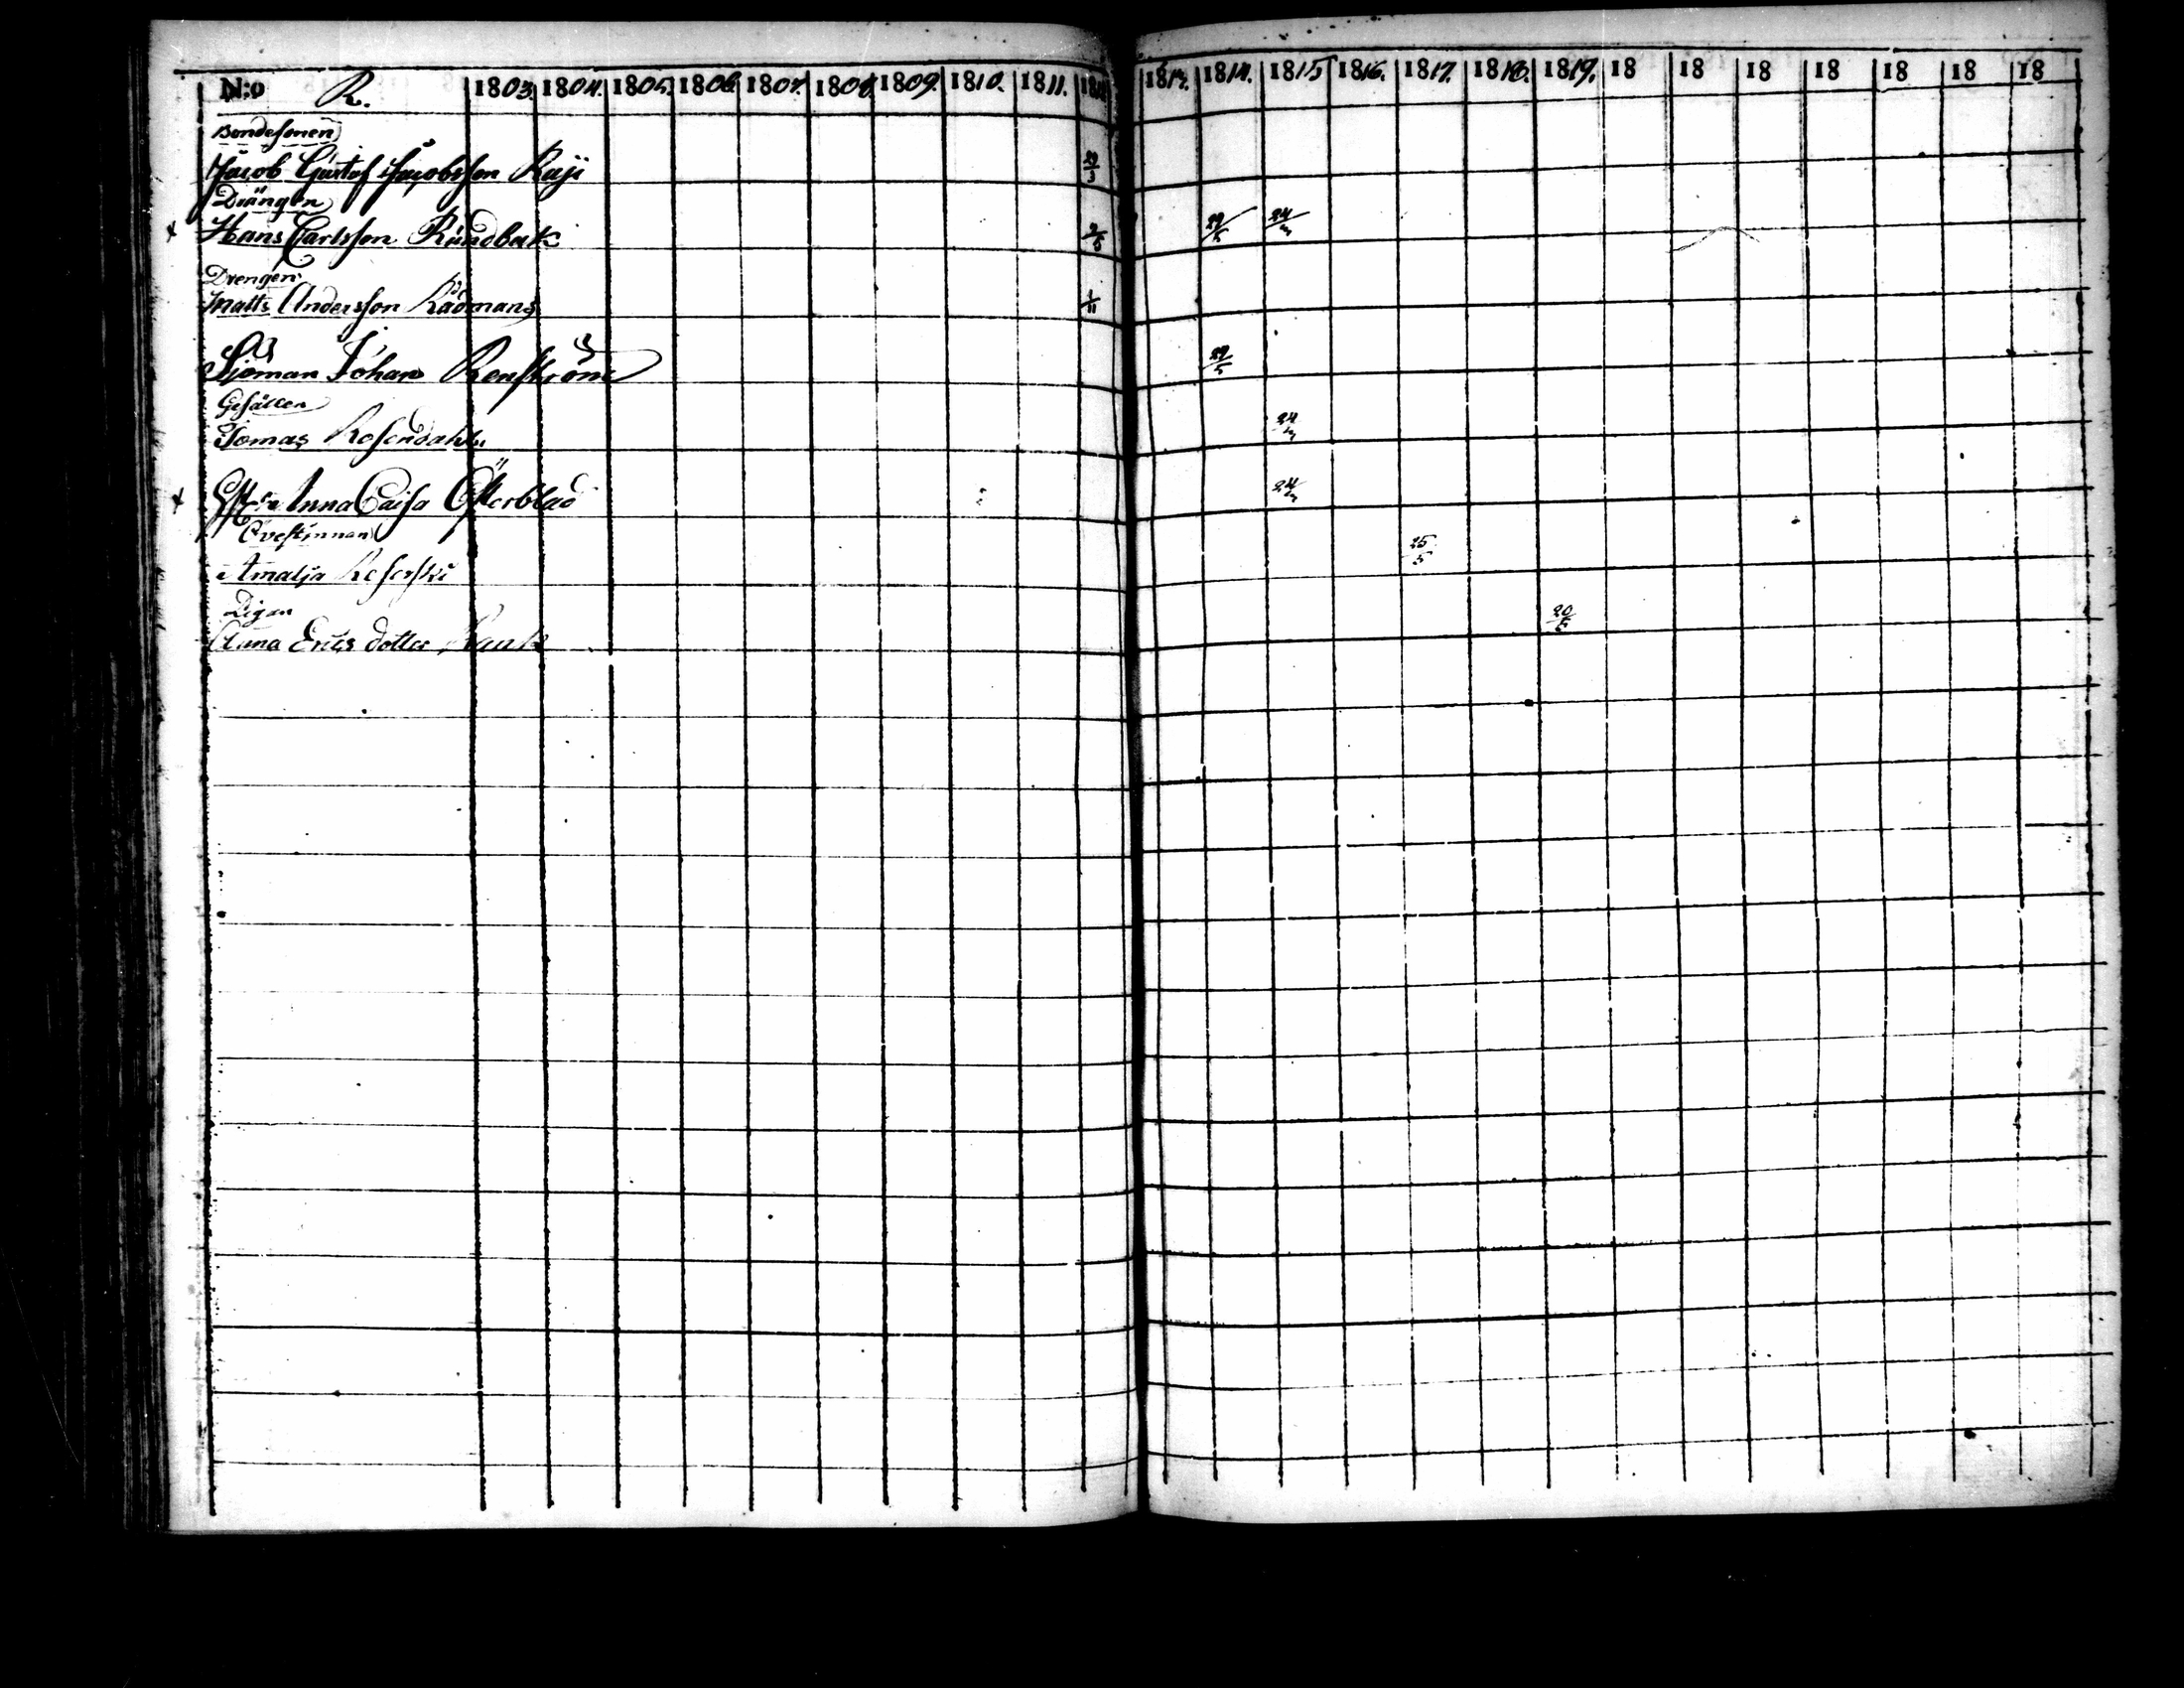 N:o R. 1803. 1804. 1805. 1806. 1807. 1808. 1809. 1810. 1811. 1813. 1814. 1815 1816. 1817. 1818. 1819. 18 18 18 18 18 18 18
Bondesonen
Jacob Gustaf Jacobsson Raji
Drängen
x Hans Carlsson Rundbak 2/5 29/5 24/3
Drengen
Matts Andersson Rådmans 1/11
Sjöman Johan Renström 29/5
Gesällen
Tomas Rosendahl 24/3
x Anna Caisa Österblad 24/3
Amalja 25/5
Pigan
Anna Erics dotter 20/5